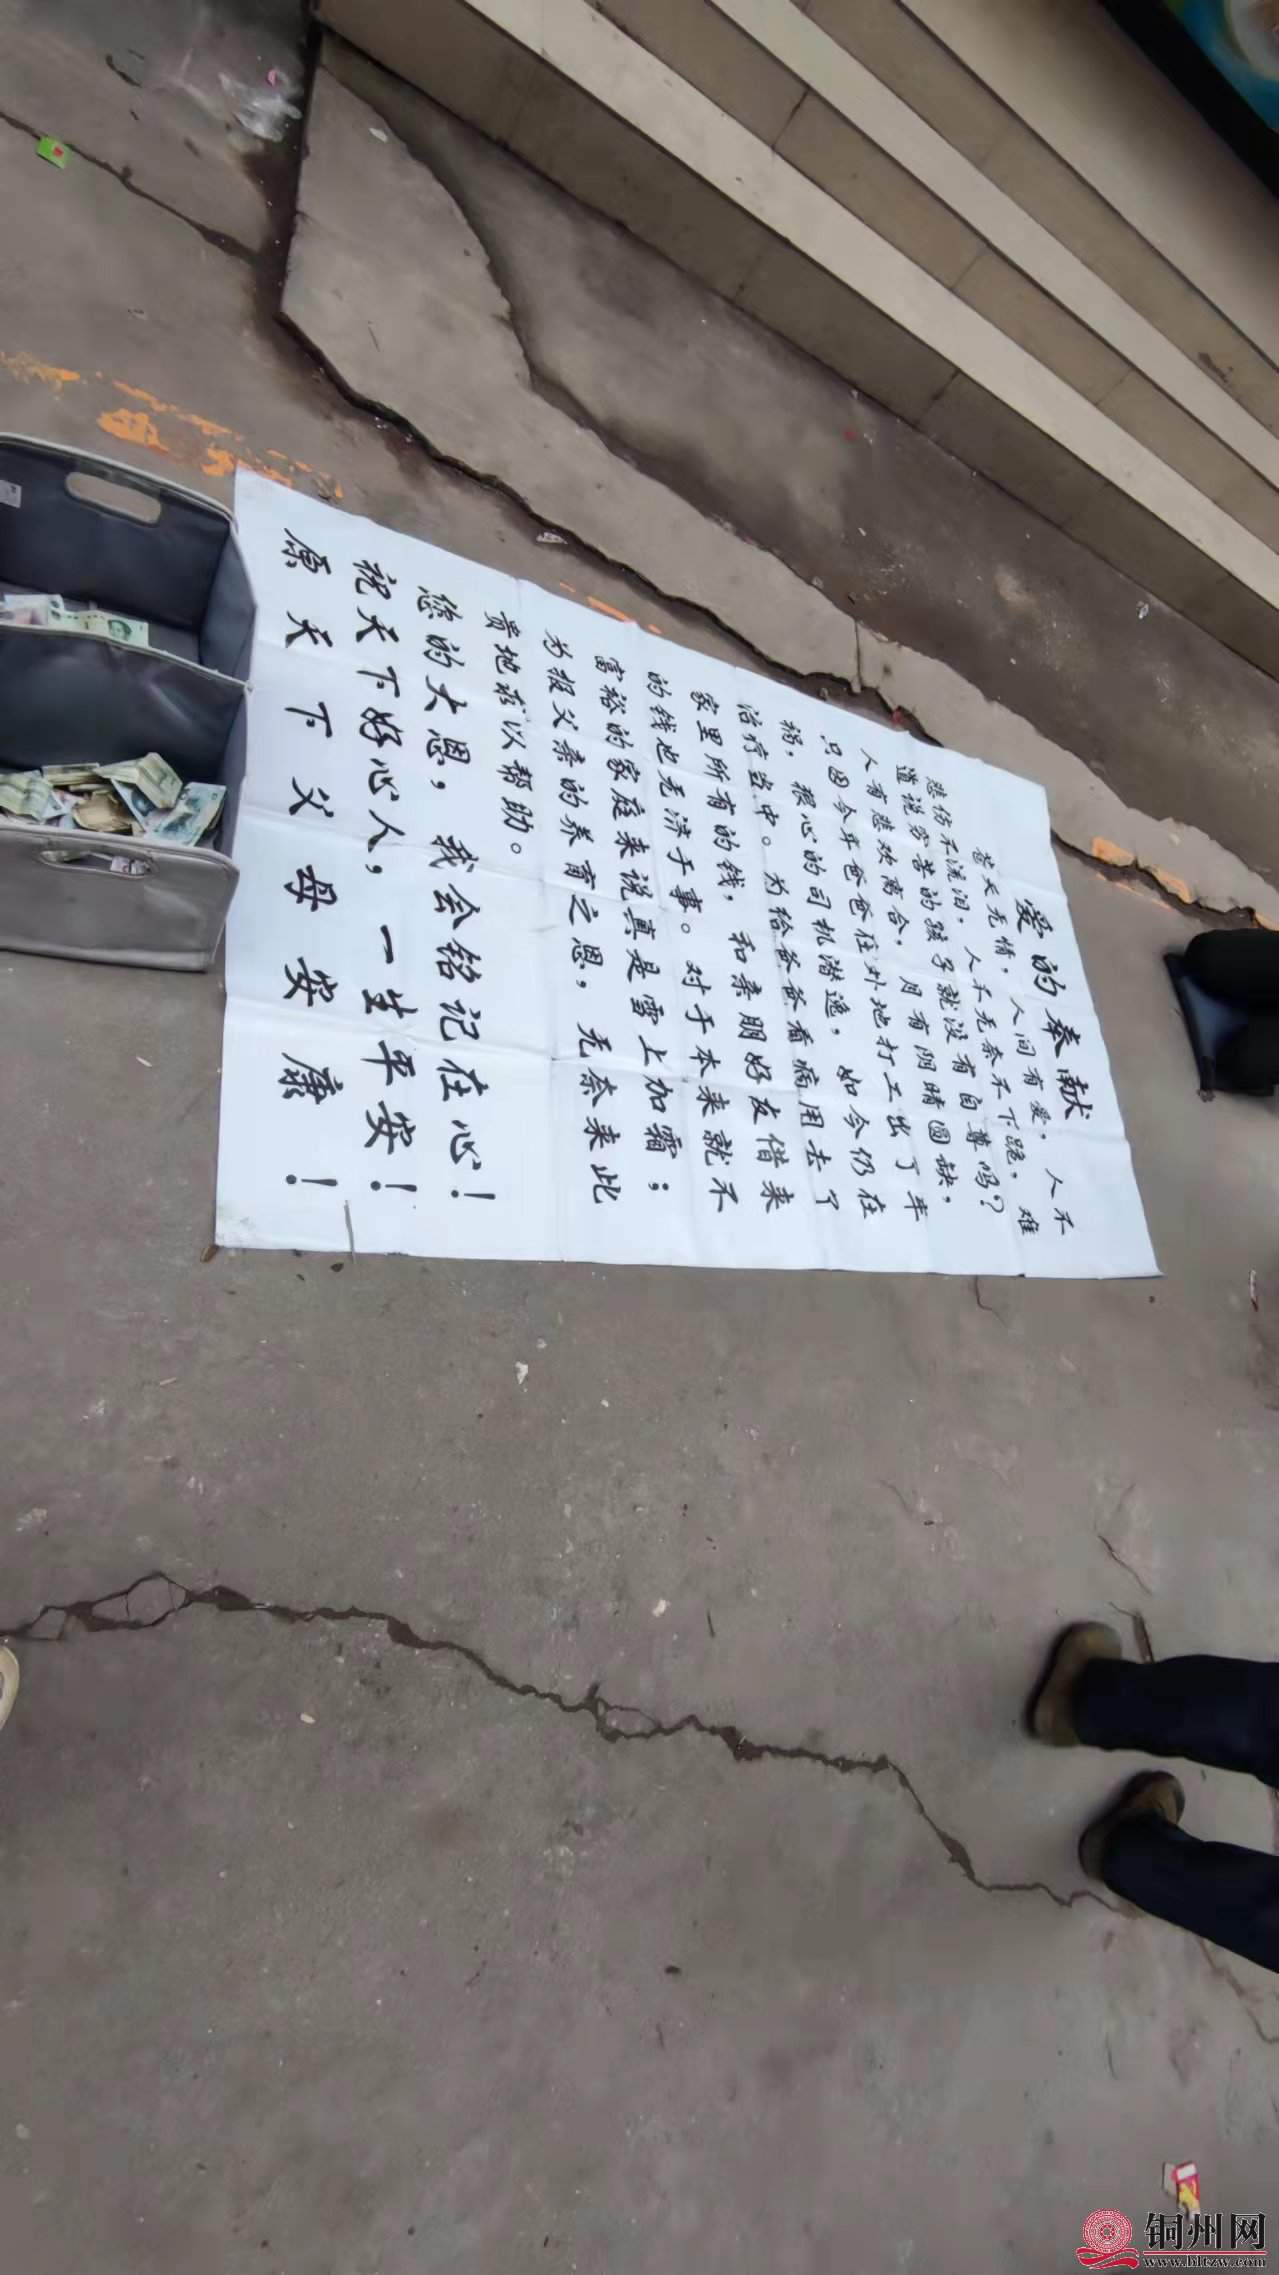 爱的奉献
苍天无情，人间有爱，人不
悲伤不流泪，人不无奈不下跪，难
道说穷苦的孩子就没有自尊吗？
人有悲欢离合，月有阴晴圆缺，
只因今年爸爸往外地打工出了车
祸，狠心的司机潜逸，如今仍在
治疗当中。为给爸爸看病用去了
家里所有的钱，和亲朋好友借来
的钱也无济于事。对于本来就不
富裕的家庭来说真是雪上加霜；
为报父亲的养育之恩，无奈来此
贵地求以帮助。
您的大恩，我会铭记在心！
祝天下好心人，一生平安！
原天下父母安康！
铜州网
www.hltzw.com